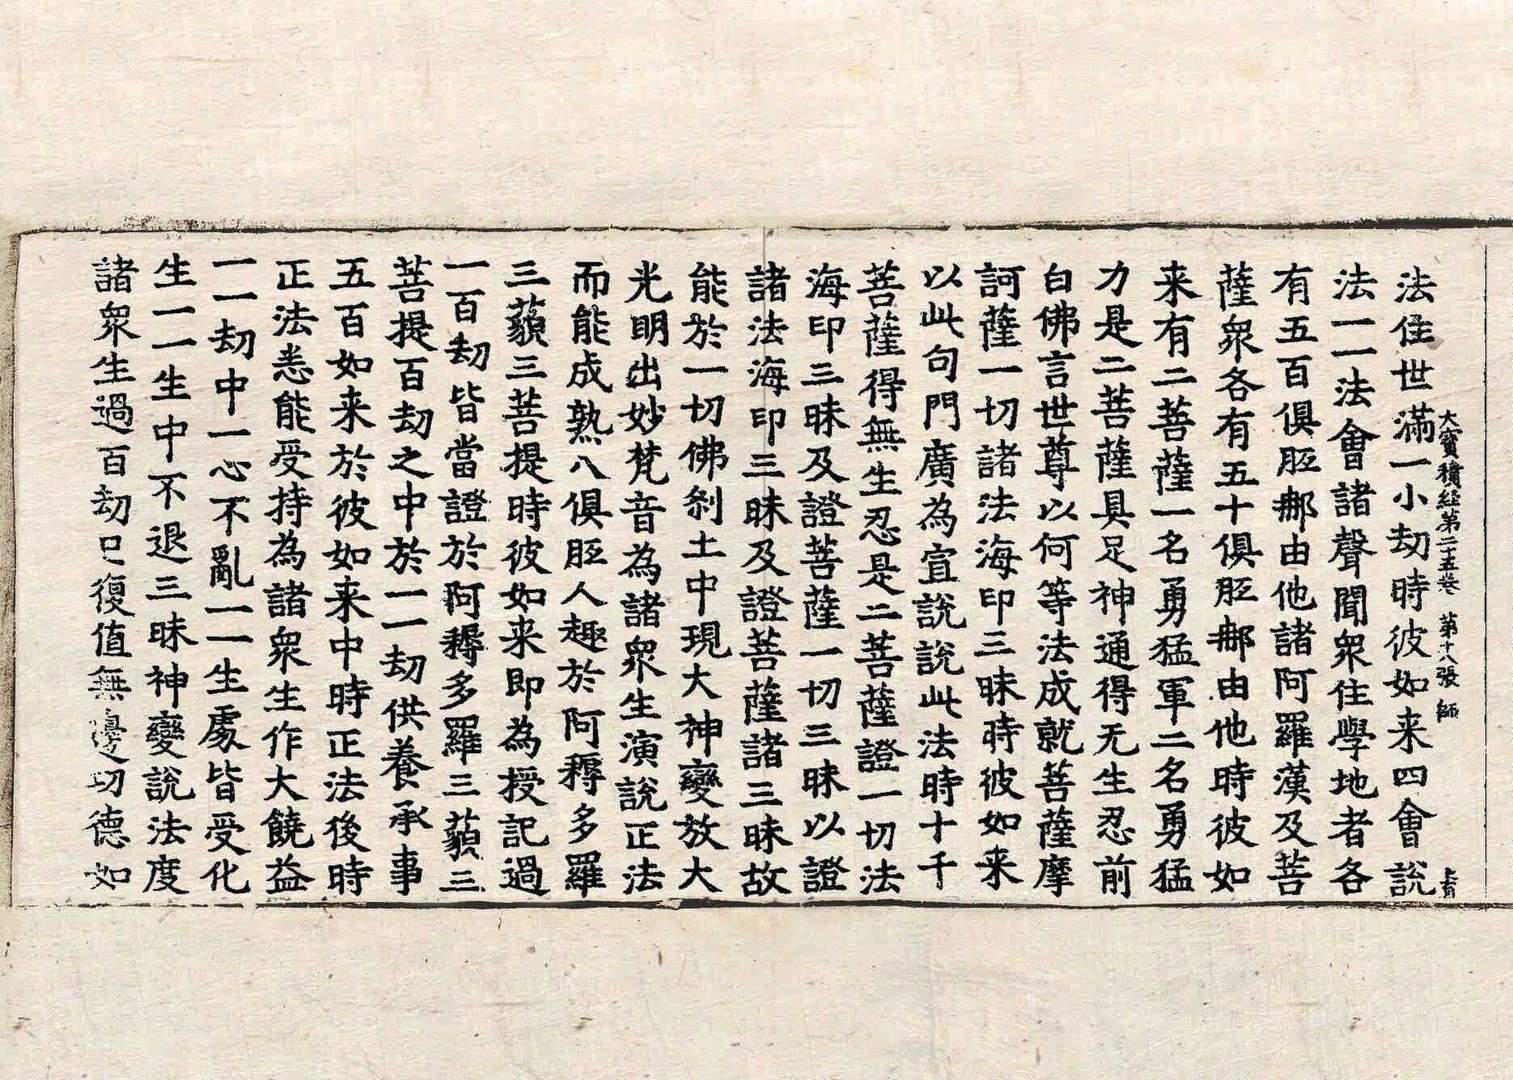 大寳積經第二十五卷 第十八張 師
法住世滿一小劫時彼如来四會說
法一一法會諸聲聞衆住學地者各
有五百俱胝那由他諸阿羅漢及菩
薩衆各有五十俱胝那由他時彼如
来有二菩薩一名勇猛軍二名勇猛
力是二菩薩具足神通得无生忍前
白佛言世尊以何等法成就菩薩摩
訶薩一切諸法海印三昧時彼如来
以此句門廣為宣說說此法時十千
菩薩得無生忍是二菩薩證一切法
海印三昧及證菩薩一切三昧以證
諸法海印三昧及證菩薩諸三昧故
能於一切佛剎土中現大神變放大
光明出妙梵音為諸衆生演說正法
而能成熟八俱胝人趣於阿耨多羅
三藐三菩提時彼如来即為授記過
一百劫皆當證於阿耨多羅三藐三
菩提百劫之中於一一劫供養承事
五百如来於彼如来中時正法後時
正法悉能受持為諸衆生作大饒益
一一劫中一心不亂一一生處皆受化
生一一生中不退三昧神變說法度
諸衆生過百劫已復值無邊功德如